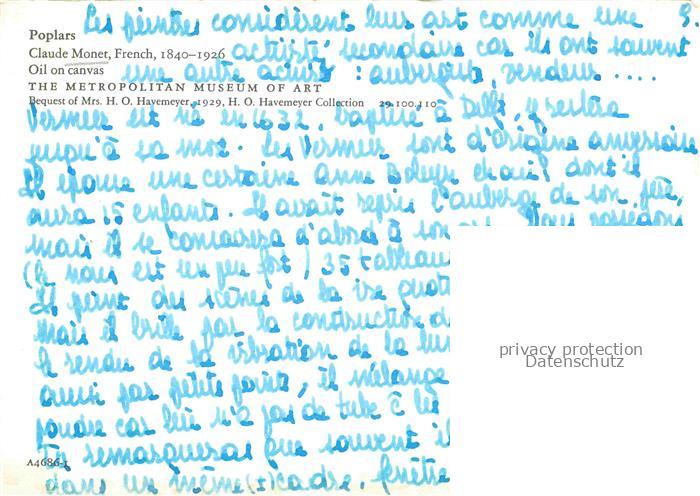 Les peintres considèrent leur art comme une 3.
Poplars
Claude Monet, French, 1840–1926
activité secondaire car ils ont souvent
Oil on canvas
une autre activité : aubergiste, vendeur ....
THE METROPOLITAN MUSEUM OF ART
Bequest of Mrs. H. O. Havemeyer, 1929, H. O. Havemeyer Collection 29.100.110
Vermeer est né en 1632, baptisé à Delft, y restera
jusqu'à sa mort. Les Vermeer sont d'origine
Il épouse une certaine Anne dont il
aura 15 enfants. Il avait repris l'auberge de son père,
mais il se consacrera d'abord à son Nous possédons
(le nous est un peu fort) 35 tableaux
Il peint des scènes de la vie quoti
Mais il brille par la construction d
le rendu de la vibration de la lum
aussi par petits points, il mélange
poudre car lui n'a pas de tube è les
Tu remarqueras que souvent il
A4686-1
dans un même (s) cadre, fenêtre
privacy protection
Datenschutz